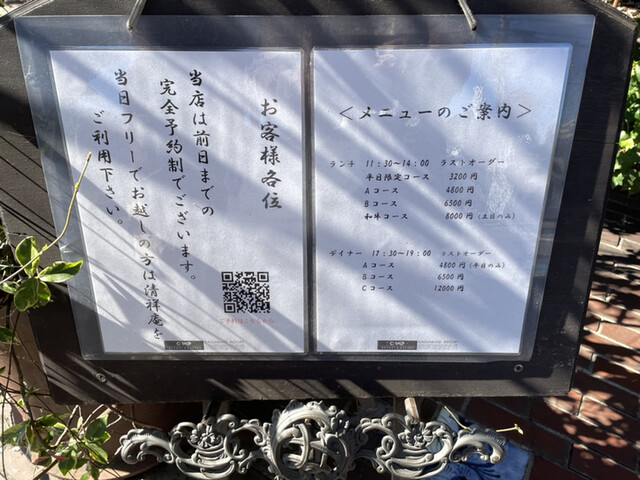 お客様各位
当店は前日までの
完全予約制でございます。
当日フリーでお越しの方は清祥庵を
ご利用下さい。
ご予約はこちらから
＜メニューのご案内＞
ランチ 11：30～14：00 ラストオーダー
平日限定コース 3200円
Aコース 4800円
Bコース 6500円
和牛コース 8000円（土日のみ）
ディナー 17：30～19：00 ラストオーダー
Aコース 4800円（平日のみ）
Bコース 6500円
Cコース 12000円